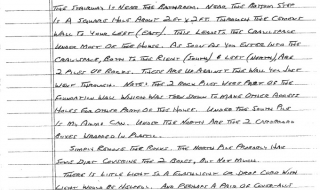 THE STAIRWAY IS NEAR THE BATHROOM. NEAR THE BOTTOM STEP
IS A SQUARE HOLE ABOUT 2FT X 2FT THROUGH THE CEMENT
WALL TO YOUR LEFT (EAST). THIS LEADS TO THE CRAWLSPACE
UNDER MOST OF THE HOUSE. AS SOON AS YOU ENTER INTO THE
CRAWLSPACE, BOTH TO THE RIGHT (SOUTH) & LEFT (NORTH) ARE
2 PILES OF ROCKS. THESE ARE UP AGAINST THE WALL YOU JUST
WENT THROUGH. NOTE: THE 2 ROCK PILES WERE PART OF THE
FOUNDATION WALL WHICH WAS TORN DOWN TO MAKE OTHER ACCESS
HOLES FOR OTHER PARTS OF THE HOUSE. UNDER THE SOUTH PILE
IS MY AMMO CAN. UNDER THE NORTH ARE THE 2 CARDBOARD
BOXES WRAPPED IN PLASTIC.
SIMPLY REMOVE THE ROCKS. THE NORTH PILE PROBABLY HAS
SOME DIRT COVERING THE 2 BOXES, BUT NOT MUCH.
THERE IS LITTLE LIGHT SO A FLASHLIGHT OR DROP CORD WITH
LIGHT WOULD BE HELPFUL. AND PERHAPS A PAIR OF COVER-ALLS